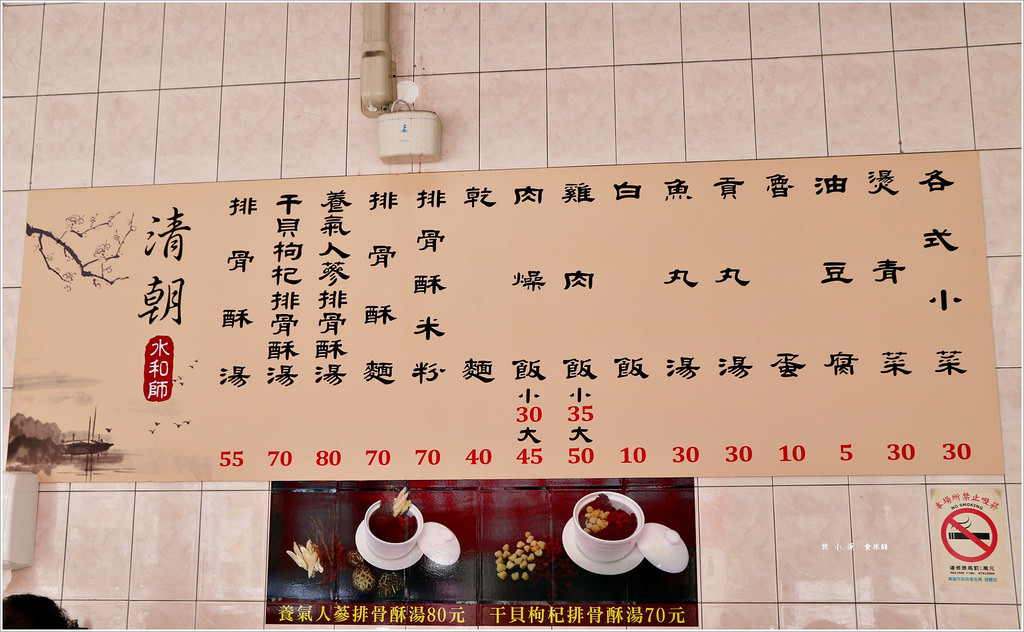 清朝
水和師
排骨酥湯 55
干貝枸杞排骨酥湯 70
養氣人蔘排骨酥湯 80
排骨酥麵 70
排骨酥米粉 70
乾麵 40
肉燥飯 小30 大45
雞肉飯 小35 大50
白飯 10
魚丸湯 30
貢丸湯 30
魯蛋 10
油豆腐 5
燙青菜 30
各式小菜 30
養氣人蔘排骨酥湯80元
干貝枸杞排骨酥湯70元
本場所禁止吸菸
NO SMOKING
違者最高罰1萬元
食旅錄